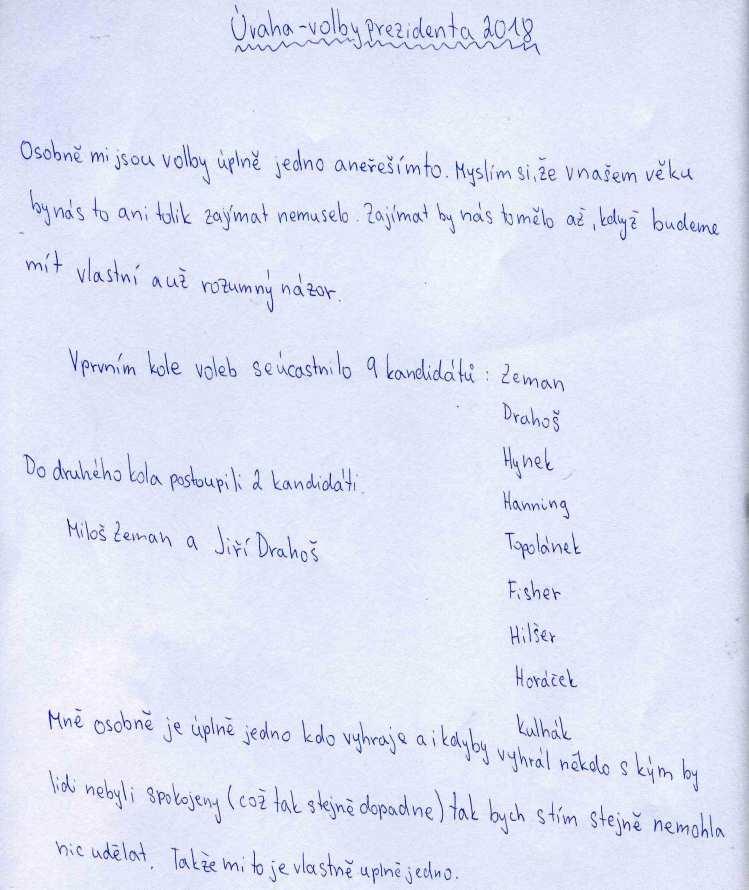 Úvaha - volby prezidenta 2018
Osobně mi jsou volby úplně jedno a neřeším to. Myslím si, že v našem věku
by nás to ani tolik zajímat nemuselo. Zajímat by nás to mělo až, když budeme
mít vlastní a už rozumný názor.
V prvním kole voleb se účastnilo 9 kandidátů : Zeman
Drahoš
Hynek
Do druhého kola postoupili 2 kandidáti.
Hanning
Miloš Zeman a Jiří Drahoš
Topolánek
Fisher
Hilšer
Horáček
Kulhák
Mně osobně je úplně jedno kdo vyhraje a i kdyby vyhrál někdo s kým by
lidi nebyli spokojeny (což tak stejně dopadne) tak bych s tím stejně nemohla
nic udělat. Takže mi to je vlastně uplně jedno.